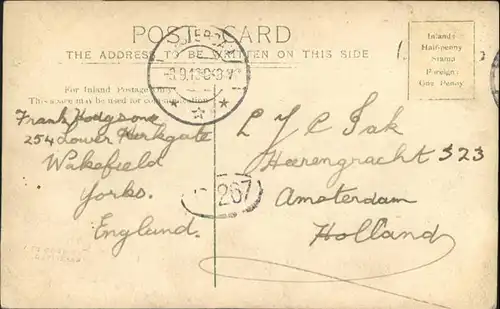 POST CARD
THE ADDRESS TO BE WRITTEN ON THIS SIDE
Inland
Half-penny
Stamp
Foreign
One Penny
For Inland Postage only
This space may be used for communication
Frank Hodgson
254 Lower Kirkgate
Wakefield
Yorks.
England.
L J C Jak
Heerengracht 323
Amsterdam
Holland
267